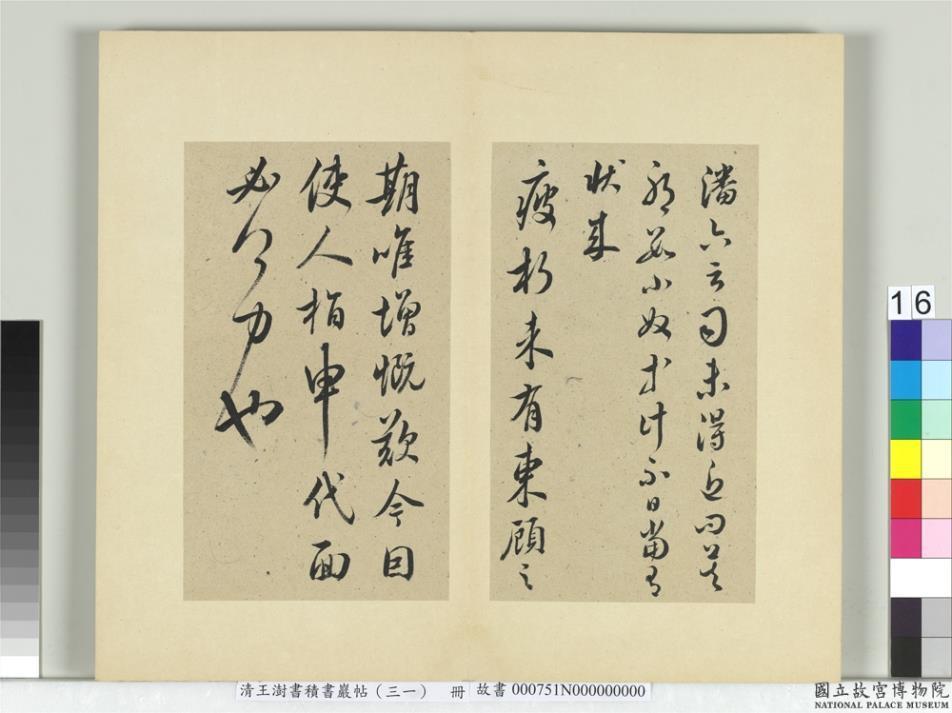 潘六云司未得近問莫
小奴等計不日當有
狀來
瘦朽未有東顧之
期唯增慨歎今因
使人指申代面
必力也
16
清王澍書積書巖帖（三一） 冊 故書 000751N000000000
國立故宮博物院
NATIONAL PALACE MUSEUM